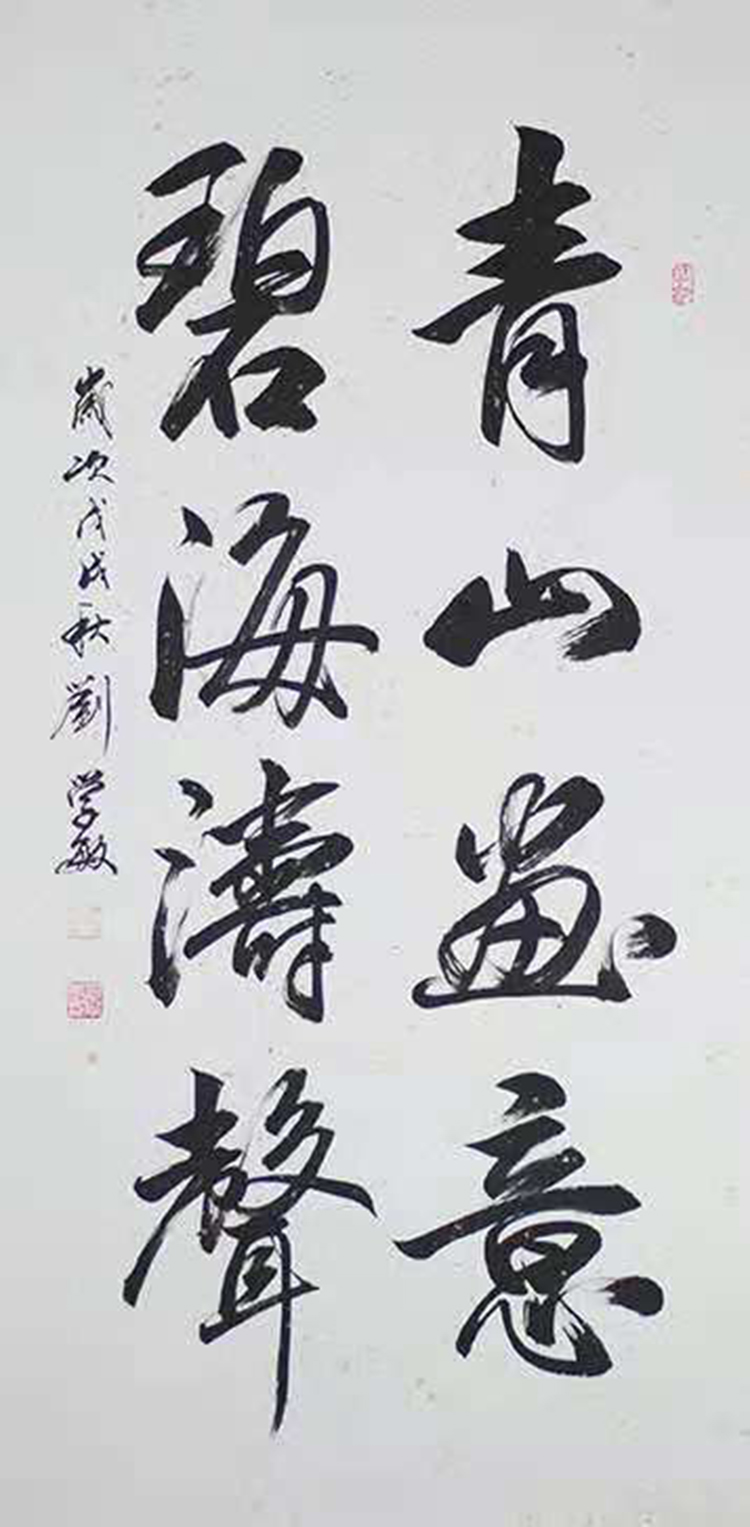 青山画意
碧海濤聲
歲次戊戌秋劉学敏